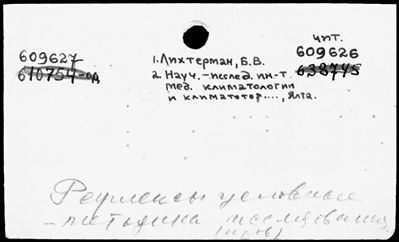 чит.
609627
610754-од
1. Лихтерман, Б.В.
609626
638745
2. Науч.-исслед. ин-т.
мед. климатологии
и климатотер...., Ялта.
Рефлексы условные
- методика исследования